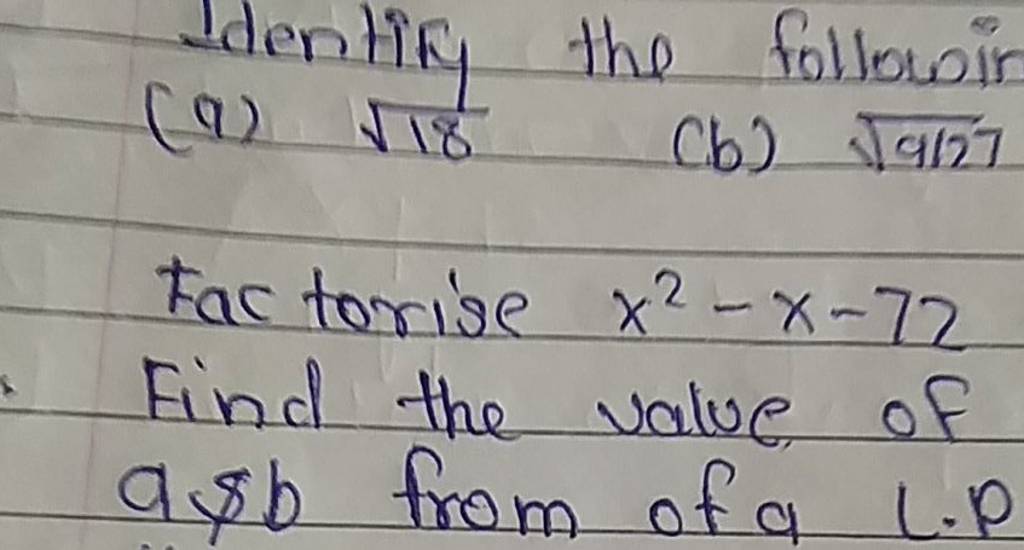 Identify the followin
(a) √18 (b) √9/27
Factorise x² - x - 72
Find the value of
a & b from of a L.P